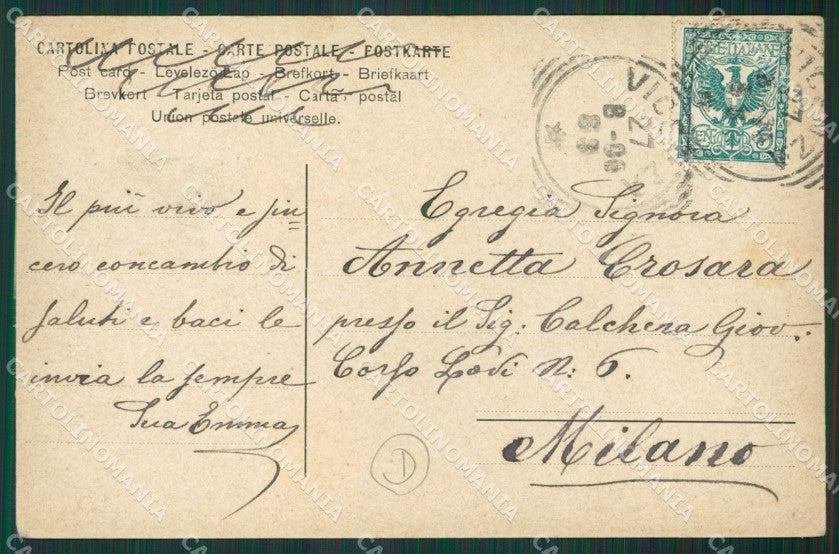 CARTOLINA POSTALE - CARTE POSTALE - POSTKARTE
Post card - Levelezö Lap - Brefkort - Briefkaart
Brevkort - Tarjeta postal - Carta postal
Union postale universelle.
Il più vivo e sin
cero concambio di
saluti e baci le
invia la sempre
Sua Emma
Egregia Signora
Annetta Crosara
presso il Sig. Calchera Giov.
Corso Lodi N: 6.
Milano
27
8-06
CARTOLINOMANIA